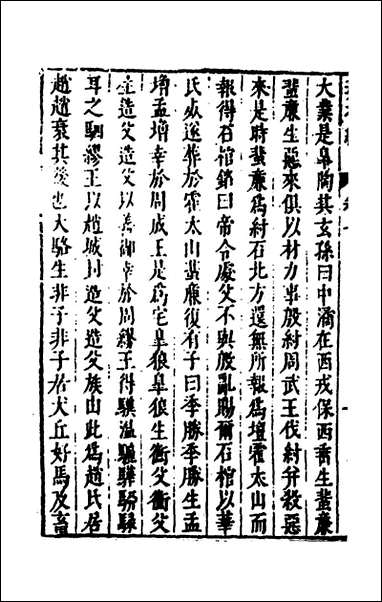 大業是皐陶其玄孫曰中潏在西戎保西垂生蜚廉
蜚廉生惡來俱以材力事殷紂周武王伐紂并殺惡
來是時蜚廉爲紂石北方還無所報爲壇霍太山而
報得石棺銘曰帝令處父不與殷亂賜爾石棺以華
氏死遂葬於霍太山蜚廉復有子曰季勝季勝生孟
增孟增幸於周成王是爲宅皐狼皐狼生衡父衡父
生造父造父以善御幸於周繆王得驥溫驪驊騮騄
耳之駟繆王以趙城封造父造父族由此爲趙氏居
趙趙衰其後也大駱生非子非子居犬丘好馬及畜